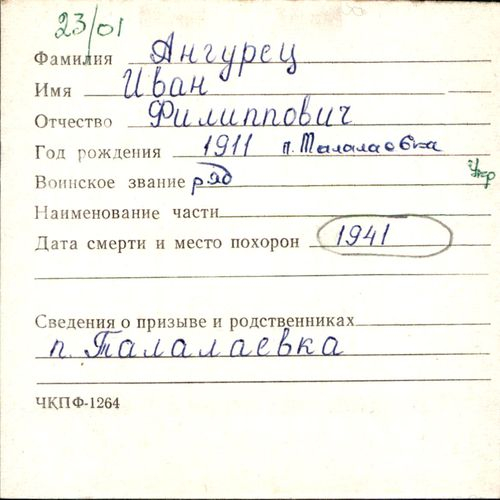 23/01
Фамилия Ангурец
Имя Иван
Отчество Филиппович
Год рождения 1911 п. Талалаевка
Воинское звание ряд Укр
Наименование части
Дата смерти и место похорон 1941
Сведения о призыве и родственниках
п. Талалаевка
ЧКПФ-1264